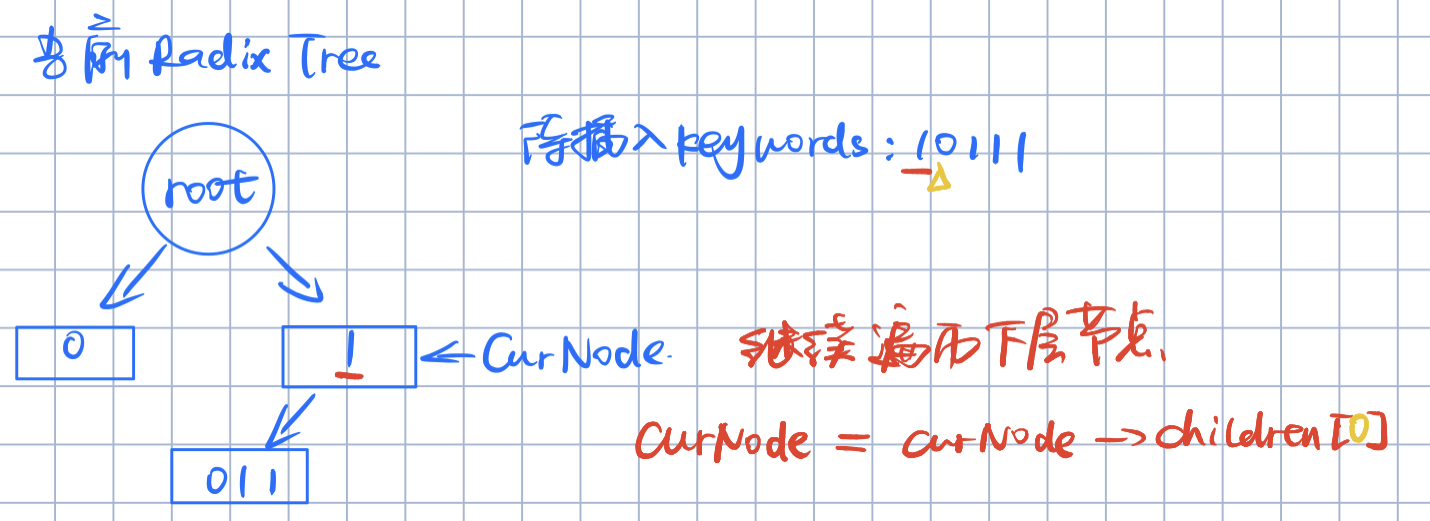 当前 Radix Tree
待插入 keywords: 10111
root
0
1
CurNode
继续遍历下层节点.
CurNode = curNode → children[0]
011